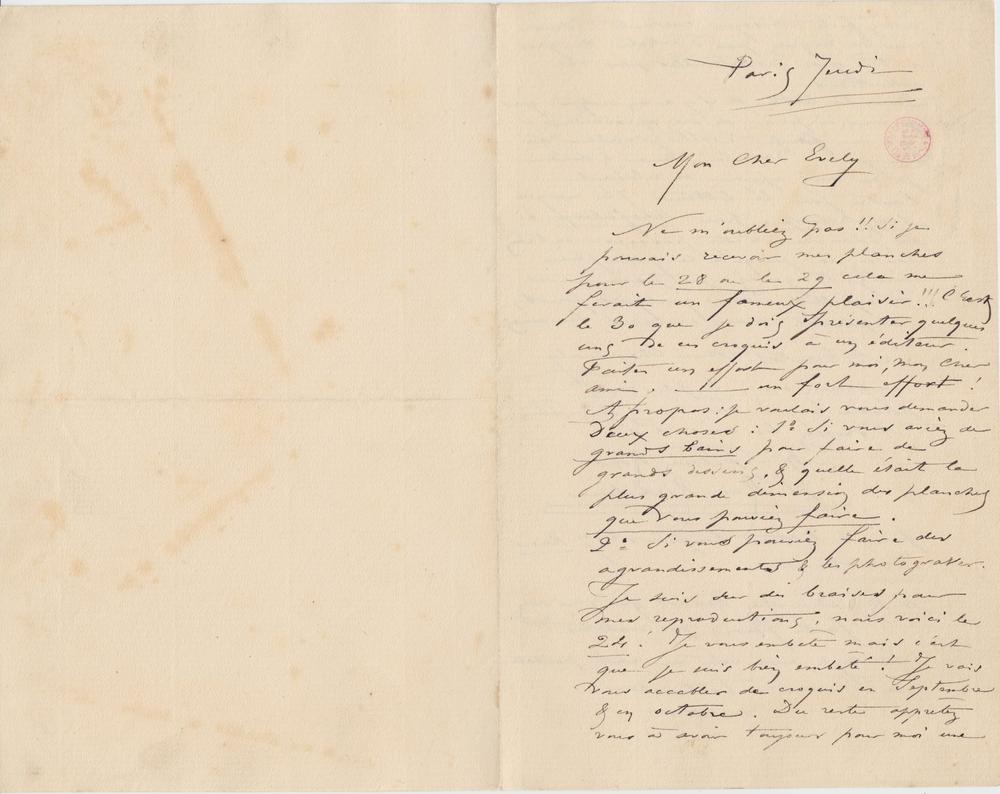 Paris Jeudi
Mon Cher Evely
Ne m'oubliez pas !! Si je
pouvais recevoir mes planches
pour le 28 ou le 29 cela me
ferait un fameux plaisir !!! C'est
le 30 que je dois présenter quelques
uns de ces croquis à un éditeur.
Faites un effort pour moi, mon cher
ami, — un fort effort !
A propos : je voulais vous demander
Deux choses : 1° Si vous aviez de
grands bains pour faire de
grands dessins, & quelle était la
plus grande dimension des planches
que vous pouviez faire.
2° Si vous pouviez faire des
agrandissements & les photograver.
Je suis sur des braises pour
mes reproductions, nous voici le
24 ! Je vous embete mais c'est
que je suis bien embeté ! Je vais
vous accabler de croquis en Septembre
& en octobre. Du reste appretez
vous à avoir toujours pour moi une